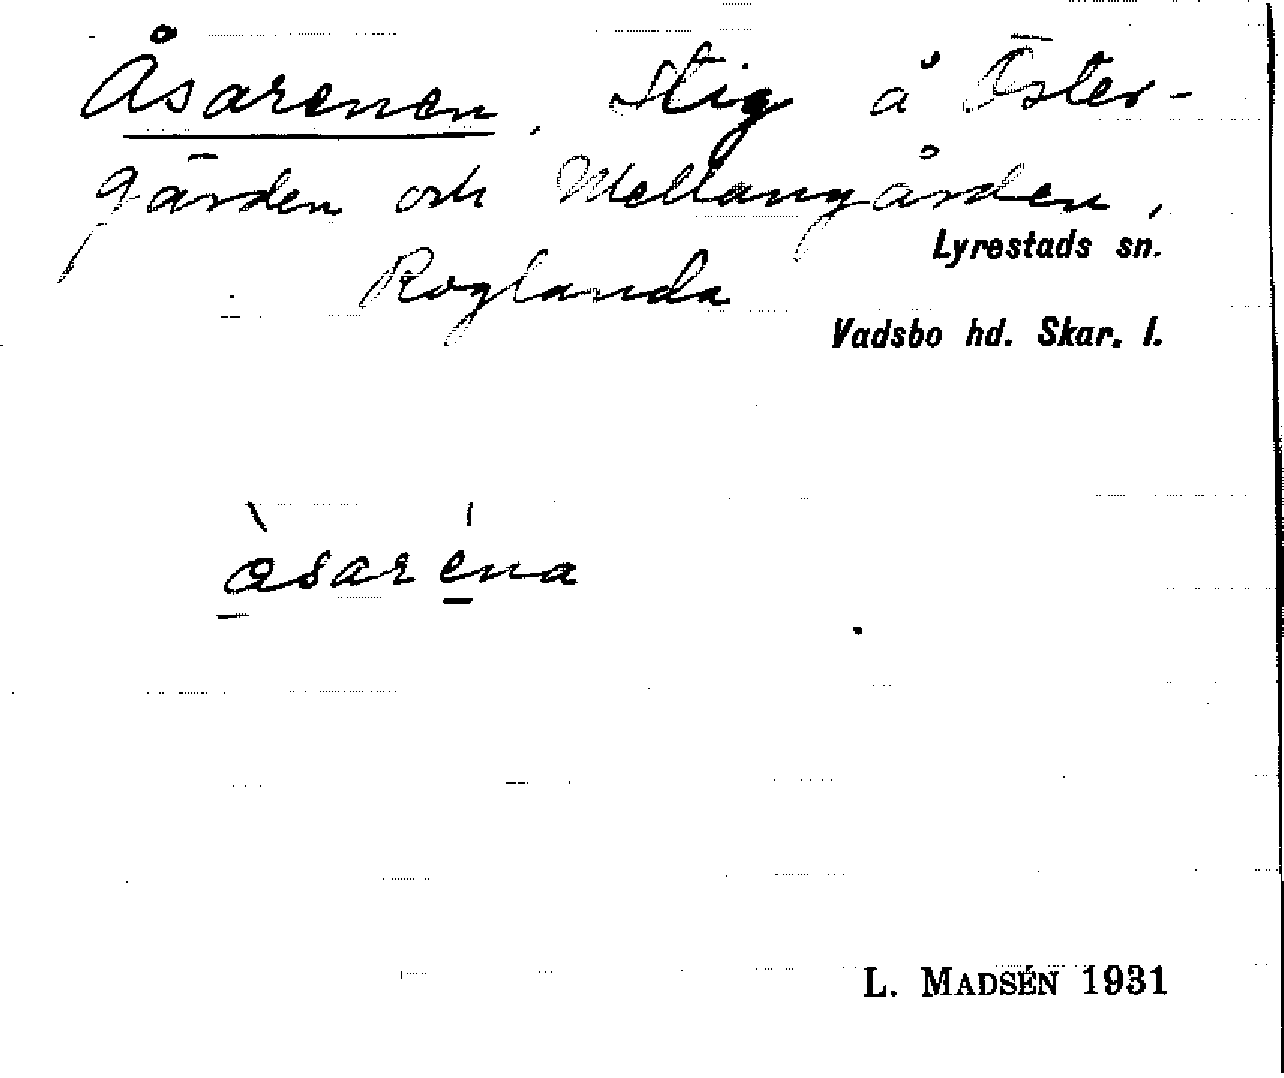 Åsarenen. Stig å Öster-
gården och Mellangården,
Roglanda
Lyrestads sn.
Vadsbo hd. Skar. l.
åsaréna
L. MADSÉN 1931